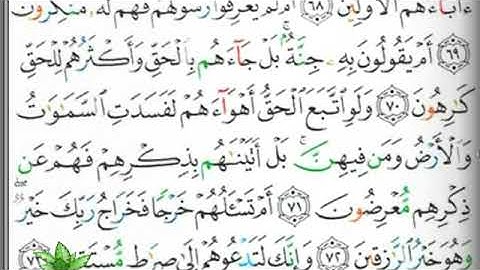 ءَابَآءَهُمُ ٱلْأَوَّلِينَ ٦٨ أَمْ لَمْ يَعْرِفُوا۟ رَسُولَهُمْ فَهُمْ لَهُۥ مُنكِرُونَ
٦٩ أَمْ يَقُولُونَ بِهِۦ جِنَّةٌۢ ۚ بَلْ جَآءَهُم بِٱلْحَقِّ وَأَكْثَرُهُمْ لِلْحَقِّ
كَـٰرِهُونَ ٧٠ وَلَوِ ٱتَّبَعَ ٱلْحَقُّ أَهْوَآءَهُمْ لَفَسَدَتِ ٱلسَّمَـٰوَٰتُ
وَٱلْأَرْضُ وَمَن فِيهِنَّ ۚ بَلْ أَتَيْنَـٰهُم بِذِكْرِهِمْ فَهُمْ عَن
ذِكْرِهِم مُّعْرِضُونَ ٧١ أَمْ تَسْـَٔلُهُمْ خَرْجًا فَخَرَاجُ رَبِّكَ خَيْرٌ
وَهُوَ خَيْرُ ٱلرَّٰزِقِينَ ٧٢ وَإِنَّكَ لَتَدْعُوهُمْ إِلَىٰ صِرَٰطٍ ٧٣